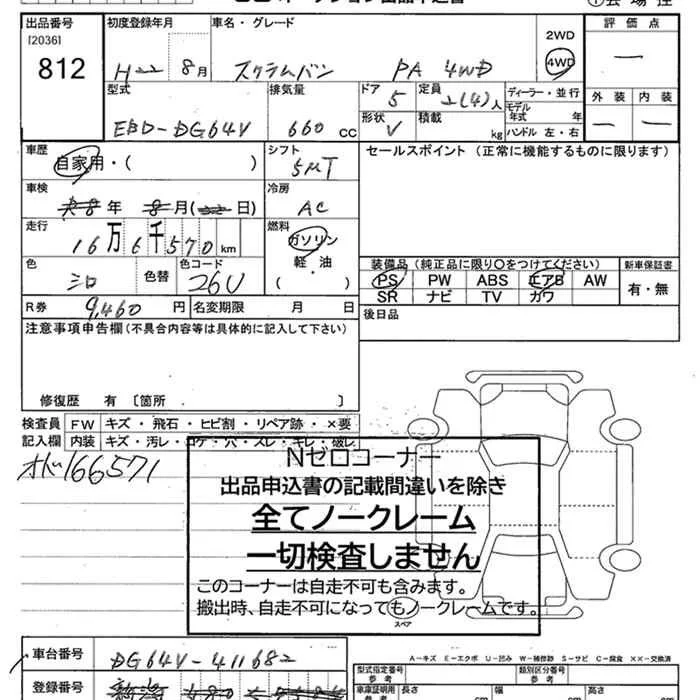 出品番号 初度登録年月 車名・グレード 評価点
[2036]
812
H22 8月 スクラムバン PA 4WD
2WD
4WD
型式 排気量 ドア 定員 ディーラー・並行 外装 内装
EBD-DG64V 660 CC 5 2(4)人
モデル年式 年
形状 V 積載 kg ハンドル 左・右
車歴 シフト セールスポイント (正常に機能するものに限ります)
自家用・( ) 5MT
車検 冷房
年 8月 ( 日) AC
走行 燃料
16万6千570km ガソリン
軽・油
( )
色 色替 色コード
シロ 26U
装備品 (純正品に限り〇をつけてください) 新車保証書
PS PW ABS エアB AW 有・無
SR ナビ TV カワ
R券 9,460 円 名変期限 月 日 後日品
注意事項申告欄(不具合内容等は具体的に記入して下さい)
修復歴 有 〔箇所 〕
検査員 FW キズ・飛石・ヒビ割・リペア跡・×要
記入欄 内装 キズ・汚レ・コゲ・穴・スレ・キレ・破レ
166571
Nゼロコーナー
出品申込書の記載間違いを除き
全てノークレーム
一切検査しません
このコーナーは自走不可も含みます。
搬出時、自走不可になってもノークレームです。
スペア
車台番号 DG64V-411682
A-キズ E-エクボ U-凹み W-補修跡 S-サビ C-腐食 ××-交換済
型式指定番号 参考 類別区分番号 参考
登録番号
車庫証明用 参考 長さ cm 幅 cm 高さ cm